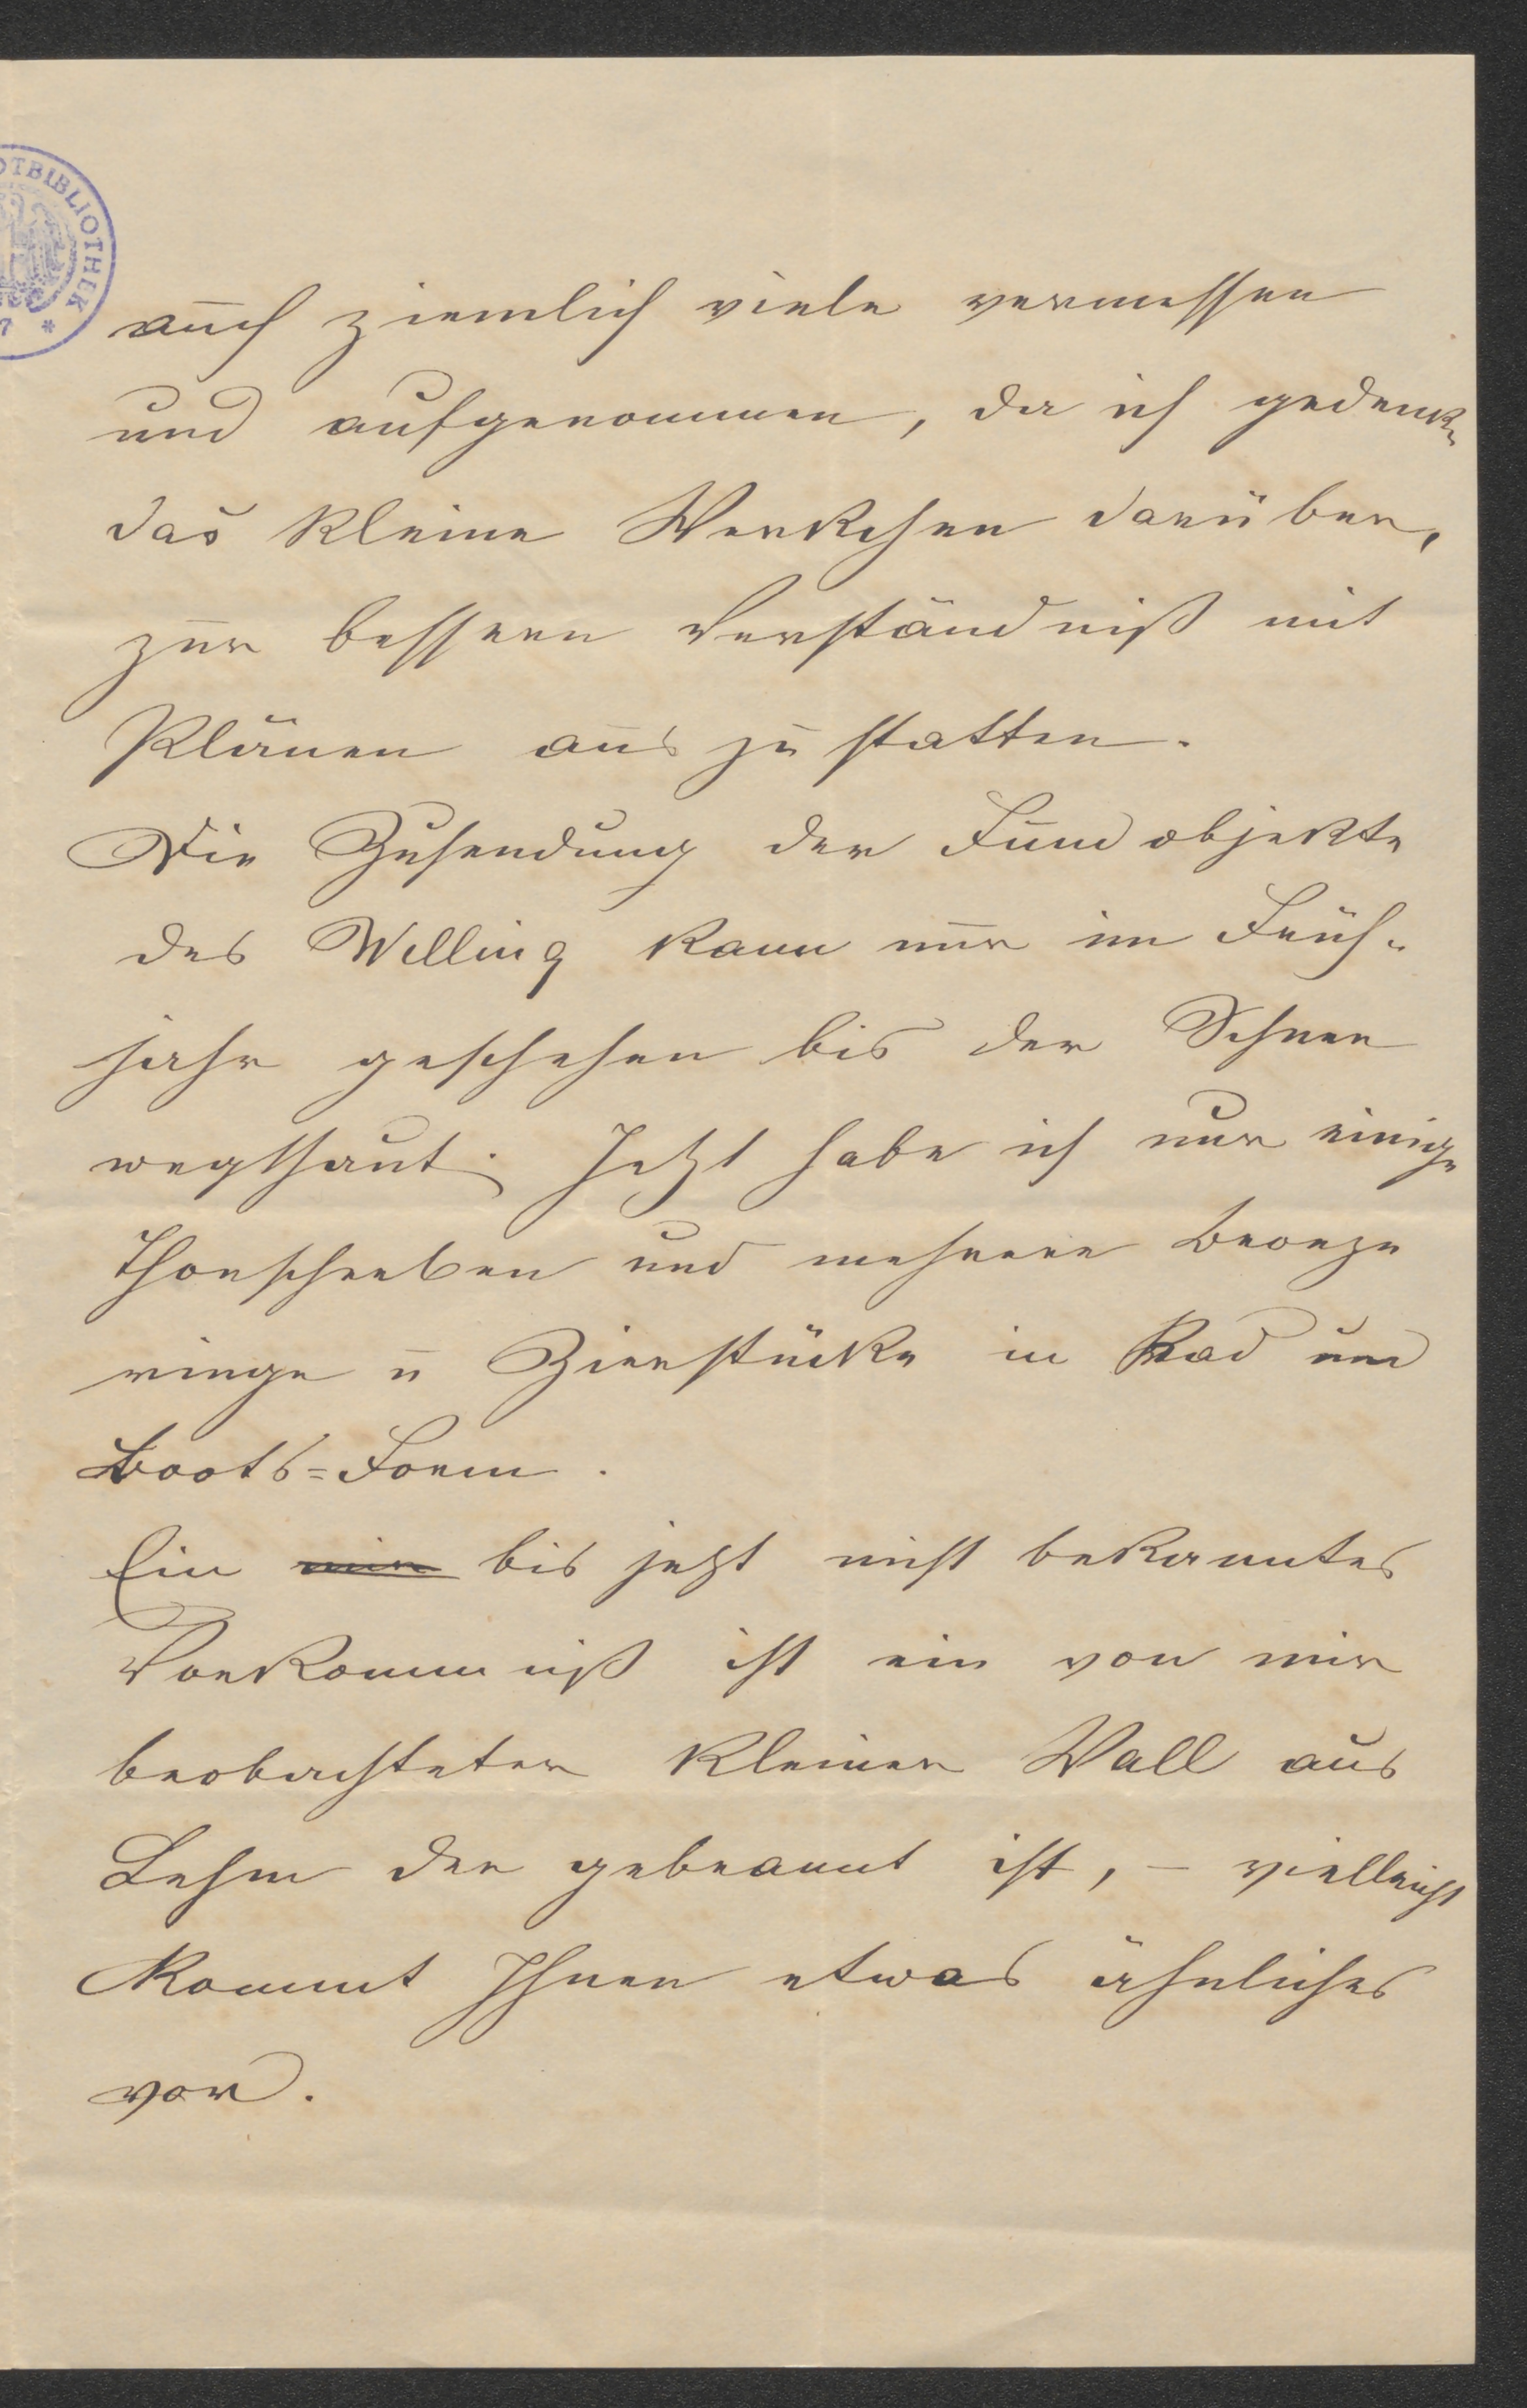 OTBIBLIOTHEK
7 *
auch ziemlich viele vermessen
und aufgenommen, da ich gedenke
das kleine Werkchen darüber,
zur bessern Verständniß mit
Plänen aus zu statten.
Die Zusendung der Fundobjekte
des Welling kann nur im Früh-
jahr geschehen bis der Schnee
wegthaut. Jetzt habe ich nur einige
Thonscherben und mehrere Bronze
ringe u Zierstücke in Rad und
Boots=Form.
Ein mir bis jetzt nicht bekanntes
Vorkommniß ist ein von mir
beobachteter kleiner Wall aus
Lehm der gebrannt ist, – vielleicht
kommt Ihnen etwas ähnliches
vor.